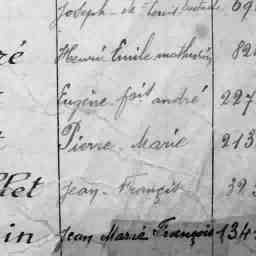 Joseph
ré Henri Emile mathurin 82
Eugène fois andré 227
Pierre-Marie 213
llet Jean-François 32
in Jean Marie François 134